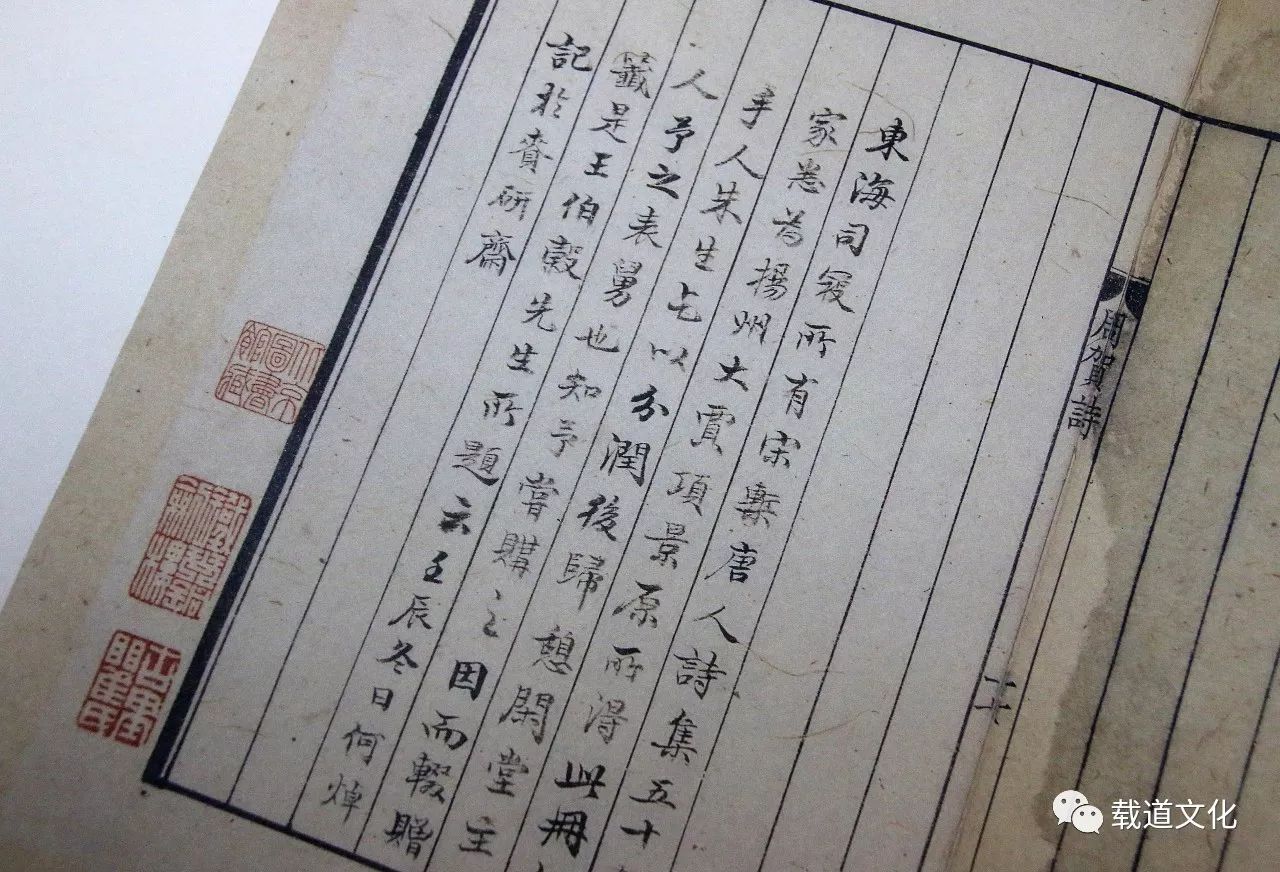 周賀詩
二十
東海司寇所有宋槧唐人詩集五十
家悉為揚州大賈項景原所得此冊
手人朱生乞以分潤後歸憩閑堂主
人予之表舅也知予嘗購之因而輟贈
籖是王伯穀先生所題云壬辰冬日何焯
記於賚研齋
鐵琴銅劍樓
载道文化